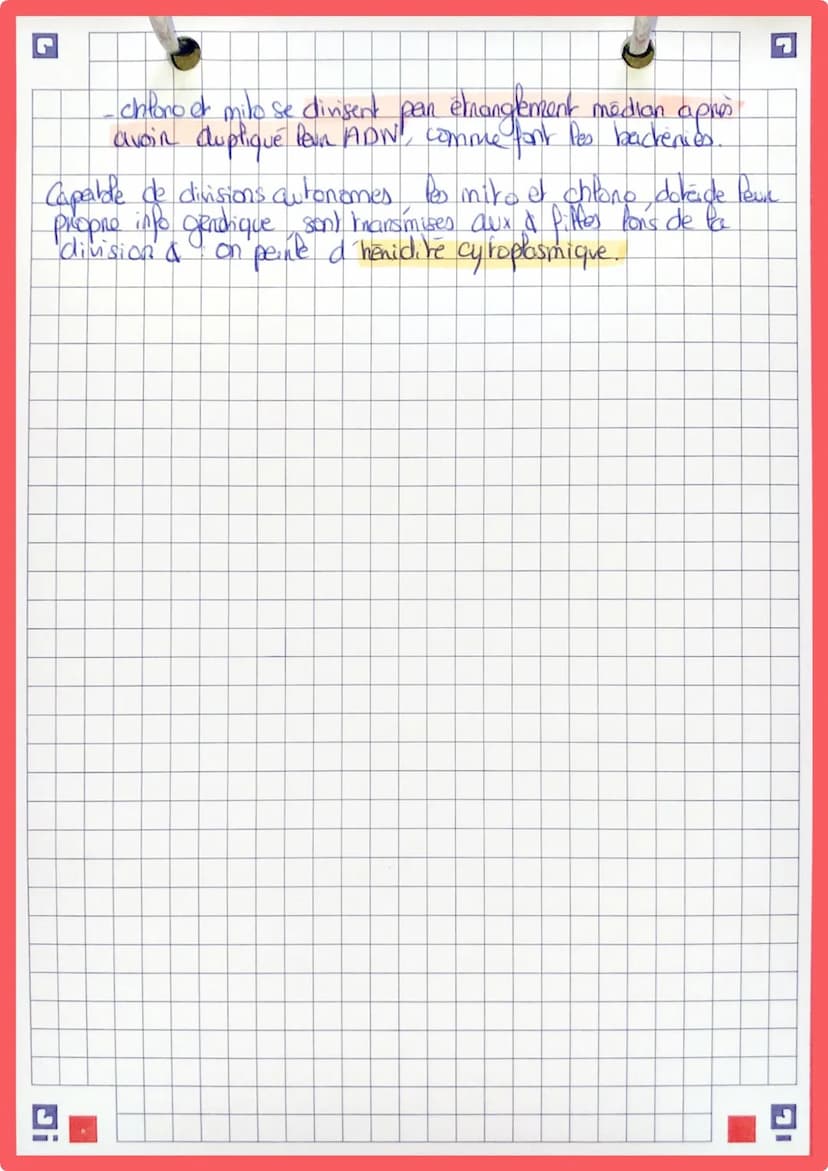 - chloro et mito se divisent par étranglement médian après
avoir dupliqué leur ADN, comme font les bactéries.
Capable de divisions autonomes, les mito et chloro, dotée de leur
propre info génétique, sont transmises aux filles lors de la
division : on parle d'hérédité cytoplasmique.